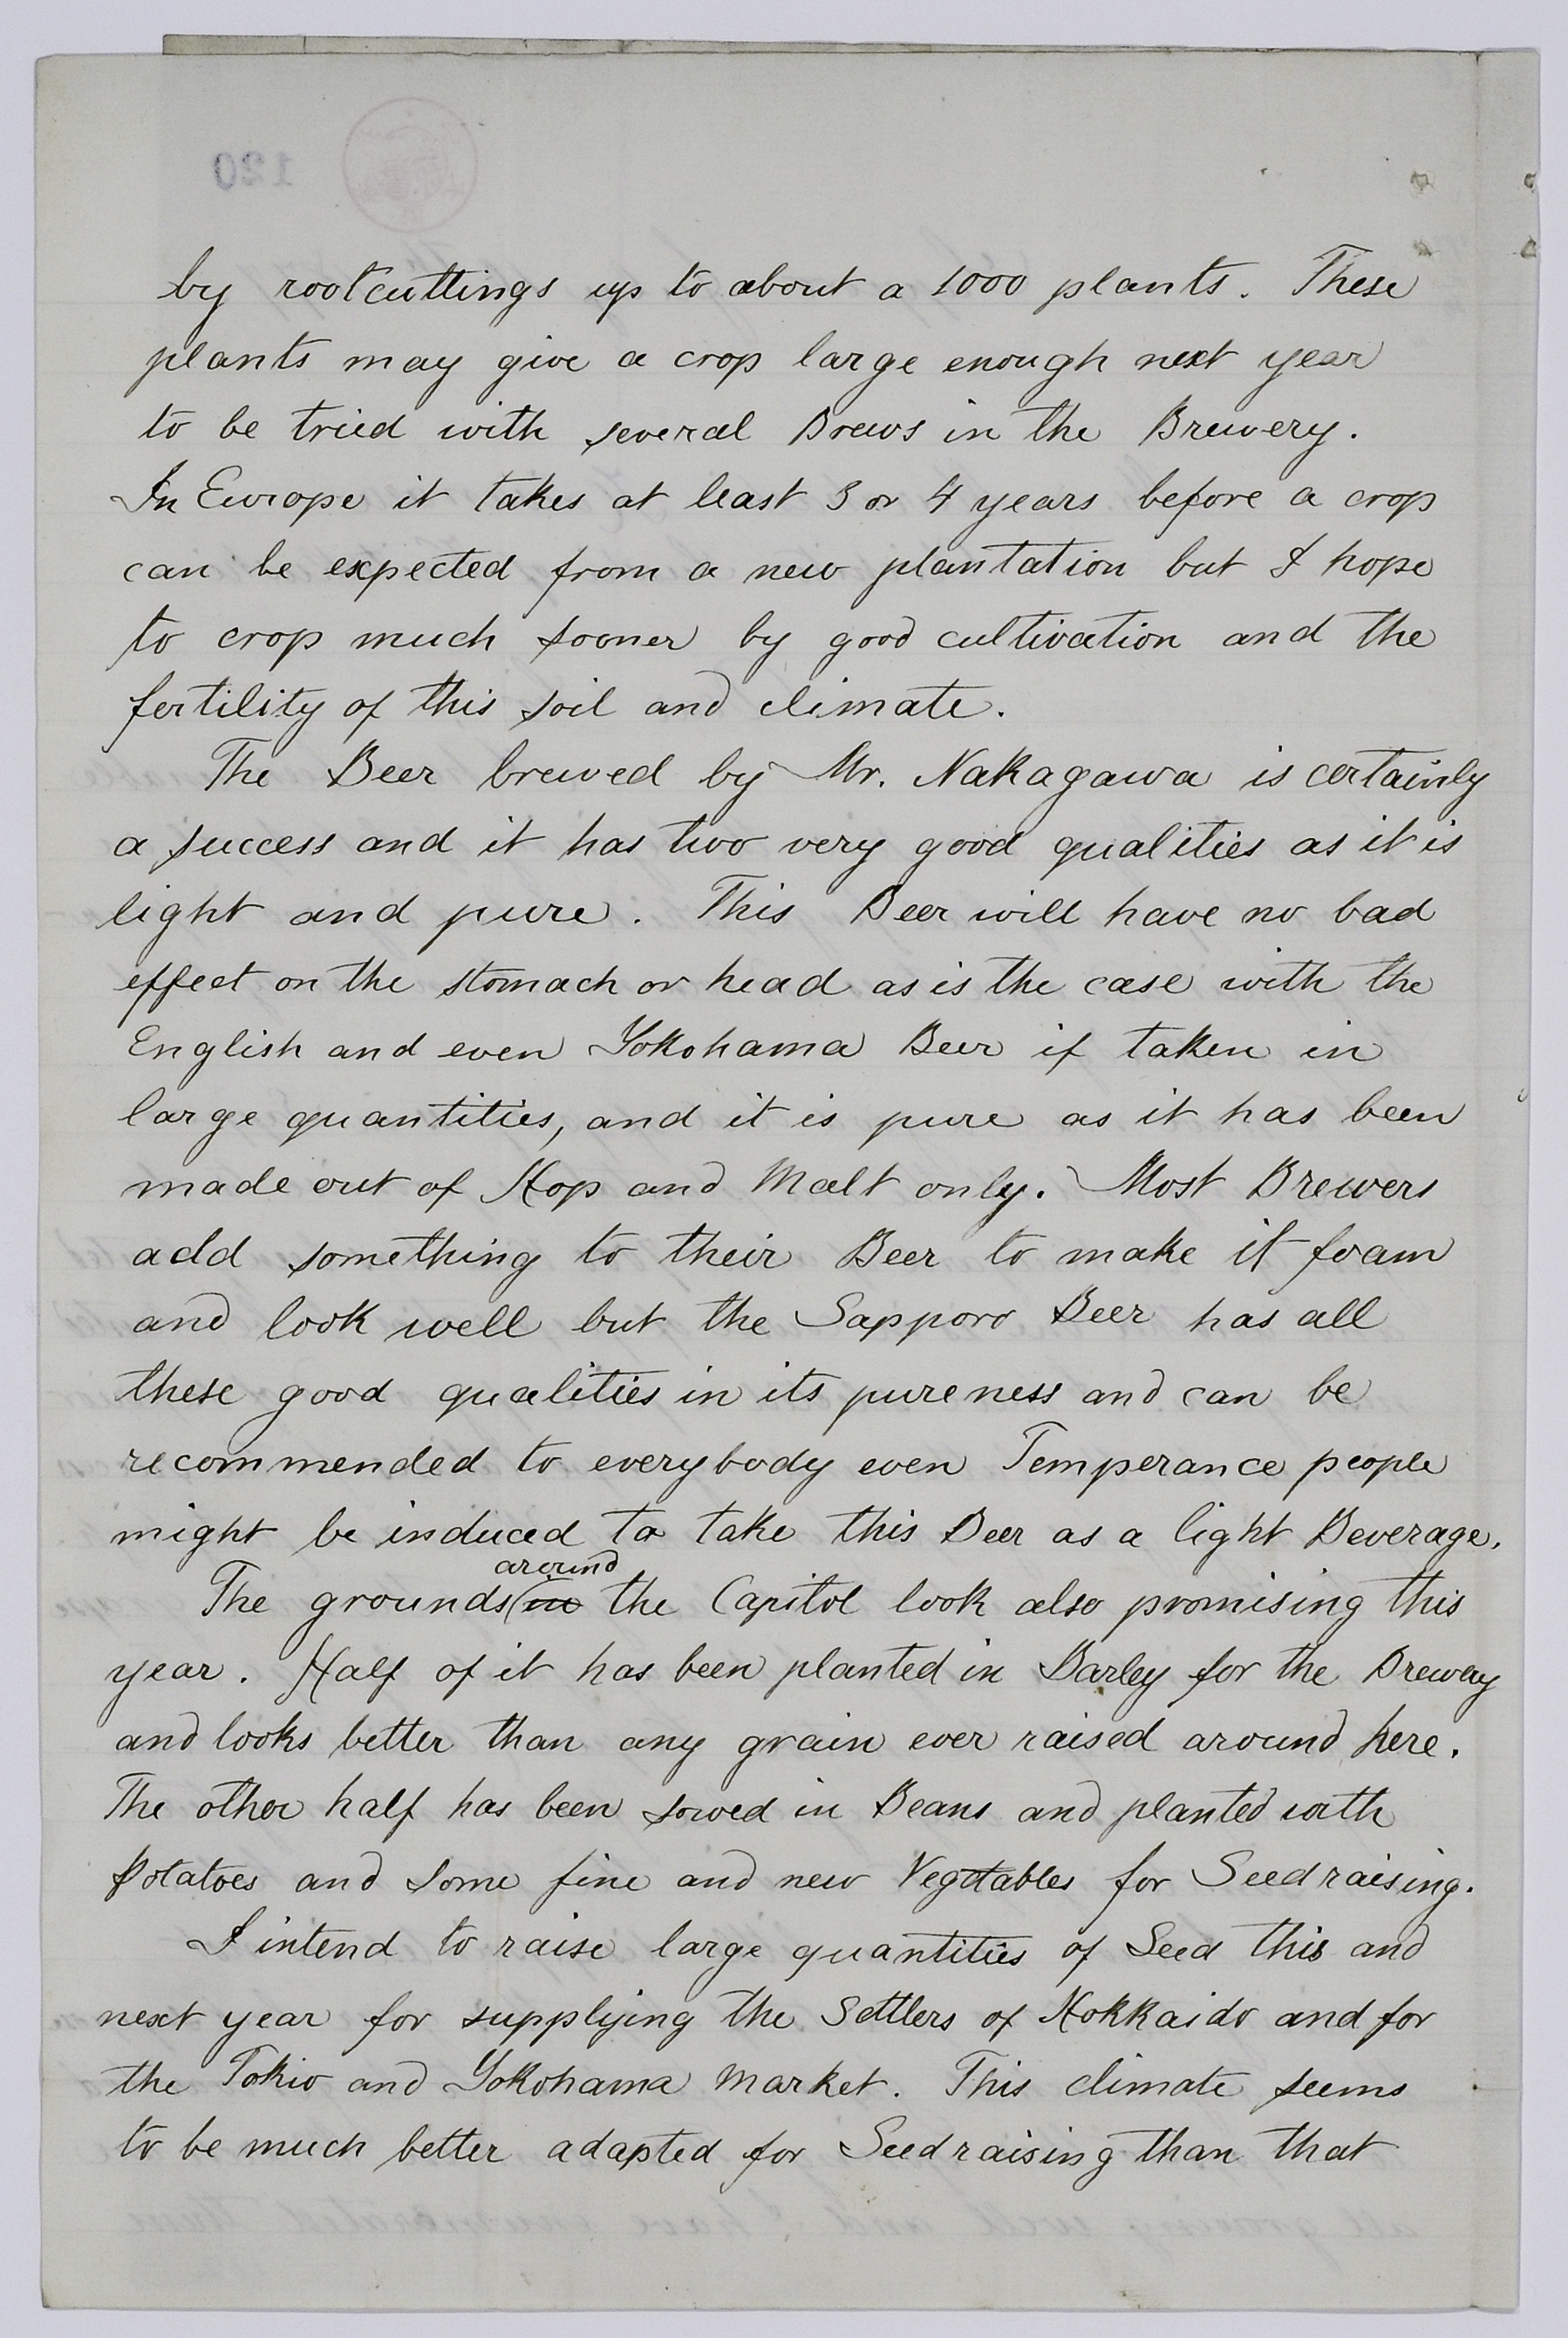 120
by rootcuttings up to about a 1000 plants. These
plants may give a crop large enough next year
to be tried with several Brews in the Brewery.
In Europe it takes at least 3 or 4 years before a crop
can be expected from a new plantation but I hope
to crop much sooner by good cultivation and the
fertility of this soil and climate.
The Beer brewed by Mr. Nakagawa is certainly
a success and it has two very good qualities as it is
light and pure. This Beer will have no bad
effect on the stomach or head as is the case with the
English and even Yokohama Beer if taken in
large quantities, and it is pure as it has been
made out of Hop and Malt only. Most Brewers
add something to their Beer to make it foam
and look well but the Sapporo Beer has all
these good qualities in its pureness and can be
recommended to everybody even Temperance people
might be induced to take this Beer as a light Beverage.
around
The grounds (in the Capitol look also promising this
year. Half of it has been planted in Barley for the Brewery
and looks better than any grain ever raised around here.
The other half has been sowed in Beans and planted with
Potatoes and some fine and new Vegetables for Seedraising.
I intend to raise large quantities of Seed this and
next year for supplying the Settlers of Hokkaido and for
the Tokio and Yokohama Market. This climate seems
to be much better adapted for Seedraising than that